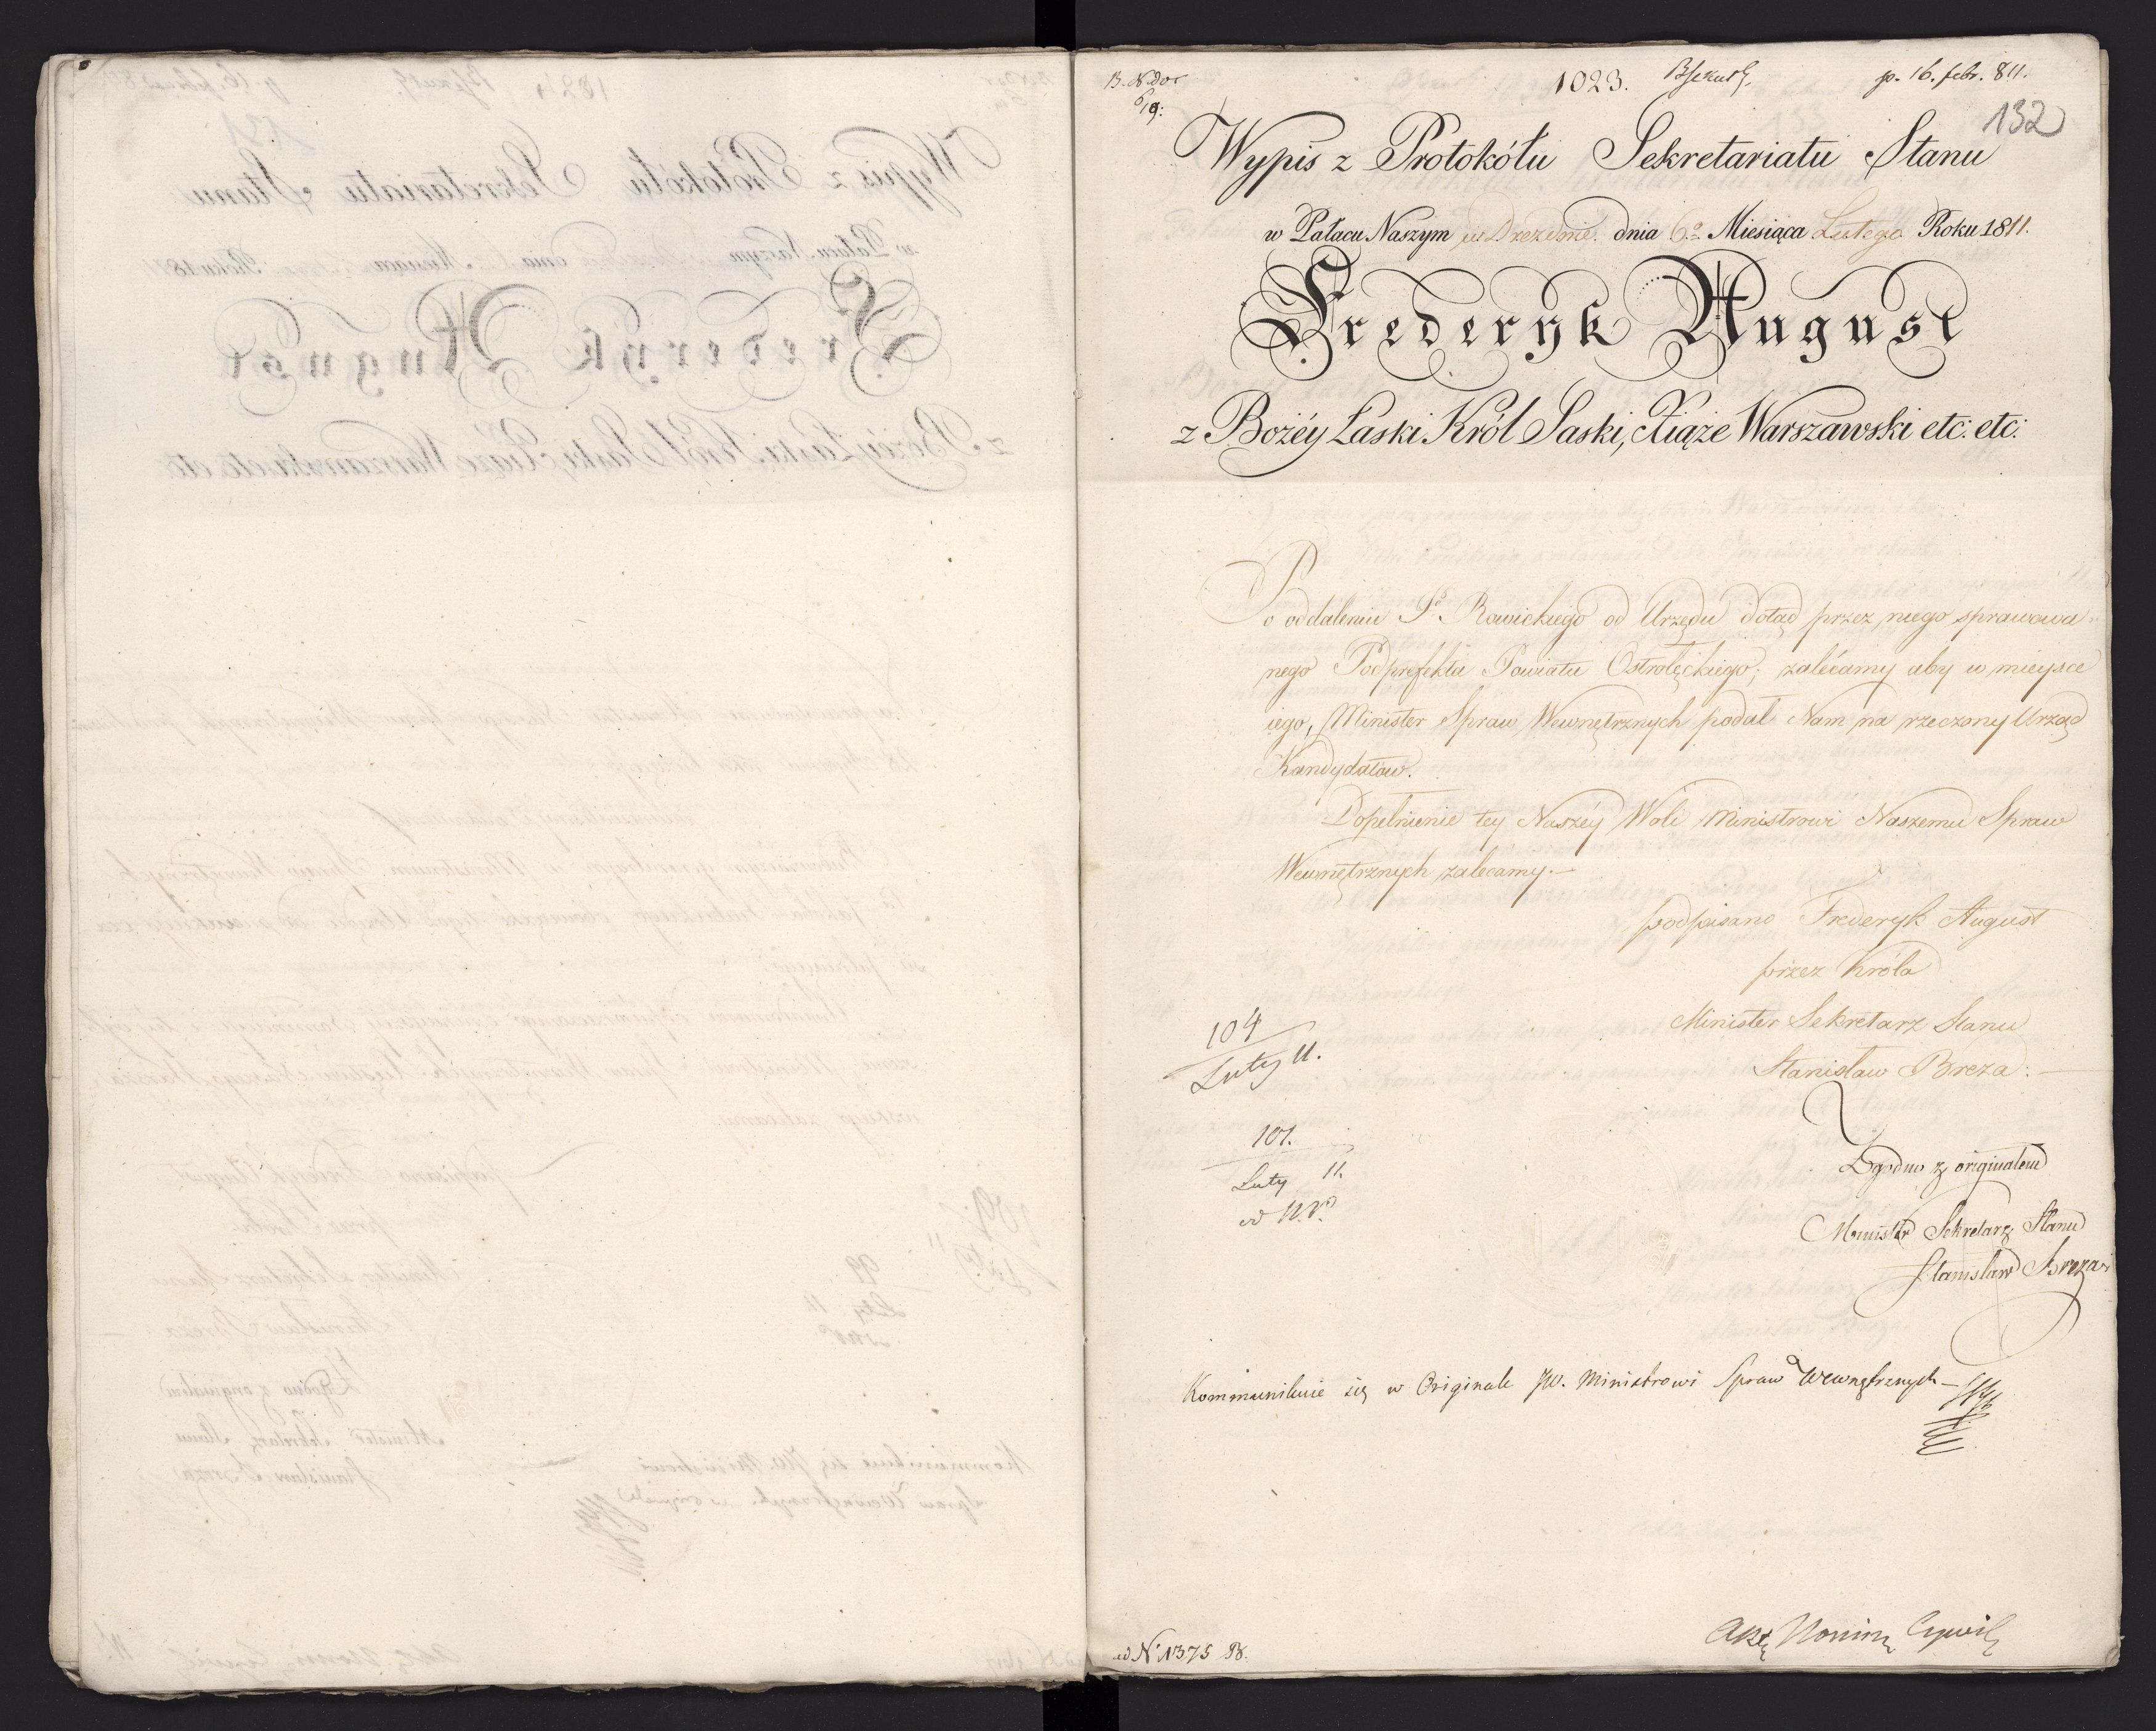 1023.
p. 16. febr. 811.
132
Wypis z Protokółu Sekretariatu Stanu
w Pałacu Naszym w Dreznie dnia 6º Miesiąca Lutego Roku 1811.
Frederyk August
z Bożéy Łaski Król Saski, Xiąże Warszawski etc: etc:
Po oddaleniu Pº Rawickiego od Urzędu dotąd przez niego sprawowa-
nego Podprefekta Powiatu Ostrołęckiego; zalécamy aby w mieysce
iego, Minister Spraw Wewnętrznych podał Nam na rzeczony Urząd
Kandydatów.
Dopełnienie tey Naszéy Woli Ministrowi Naszemu Spraw
Wewnętrznych zalécamy.—
podpisano Frederyk August
przez Króla
Minister Sekretarz Stanu
Stanisław Breza.
104
Luty 11.
101.
Luty 11.
Zgodno z originałem
Minister Sekretarz Stanu
Stanisław Breza
Kommunikuie się w Originale JW. Ministrowi Spraw Wewnętrznych —
ad Nº 1375